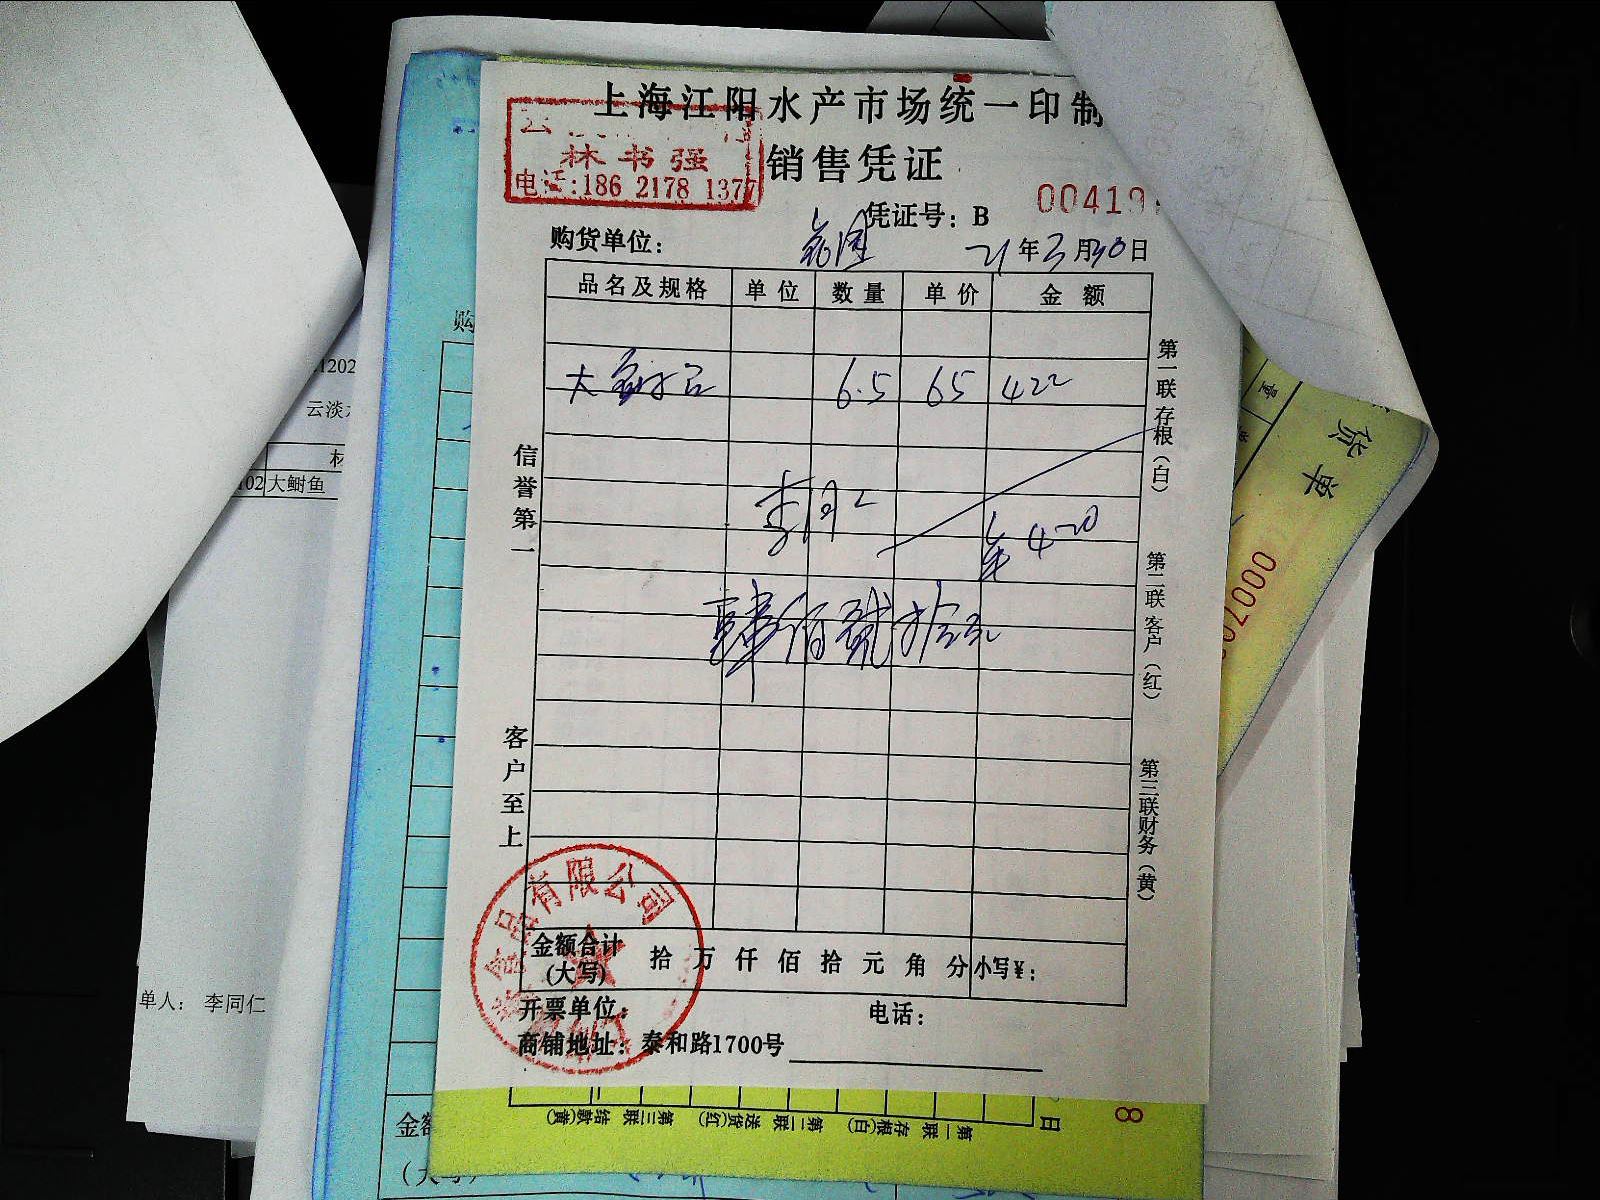 上海江阳水产市场统一印制
销售凭证
林书强
电话:186 2178 1377
凭证号：B 00419
购货单位：
21年3月30日
品名及规格 单位 数量 单价 金额
大 6.5 65 422
李同仁
420
肆佰贰拾元
信誉第一
客户至上
第一联存根（白）
第二联客户（红）
第三联财务（黄）
金额合计(大写) 拾万仟佰拾元角分 小写¥：
开票单位： 电话：
商铺地址：泰和路1700号
食品有限公司
购
1202
云淡
材
102 大鲥鱼
单人： 李同仁
货单
量
金额
（大写）
第一联 存根(白) 第二联 送货(红) 第三联 结款(黄)
日
8